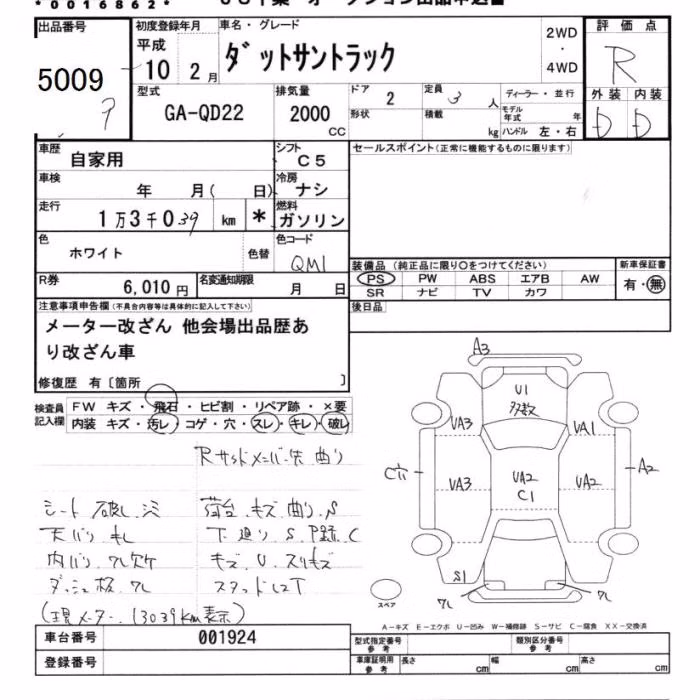 *0016862*
出品番号
5009
初度登録年月
平成
10 2月
車名・グレード
ダットサントラック
2WD
・
4WD
評価点
R
外装 内装
D D
型式
GA-QD22
排気量
2000
CC
ドア 2
形状
定員 3 人
積載 kg
ディーラー・並行
モデル年式 年
ハンドル 左・右
車歴
自家用
シフト
C5
車検
年 月( 日)
冷房
ナシ
走行
1万3千039 km *
燃料
ガソリン
色
ホワイト
色替
色コード
QM1
R券
6,010円
名変通知期限
月 日
セールスポイント(正常に機能するものに限ります)
装備品(純正品に限り○をつけてください)
PS PW ABS エアB AW
SR ナビ TV カワ
新車保証書
有・無
後日品
注意事項申告欄(不具合内容等は具体的に記入して下さい)
メーター改ざん 他会場出品歴あ
り改ざん車
修復歴 有〔箇所 〕
検査員
記入欄
FW キズ・飛石・ヒビ割・リペア跡・×要
内装 キズ・汚レ・コゲ・穴・スレ・キレ・破レ
Rサイドメンバー先 曲り
シート 破レ.シミ
荷台.キズ.曲り.S
下廻り S.P錆.C
キズ.U.スリキズ
ダッシュ板.ワレ
スタッドレスT
(現メーター.13039km表示)
A3
U1
多数
VA3
VA1
C穴
VA3
VA2
C1
VA2
A2
S1
ワレ
ワレ
スペア
A-キズ E-エクボ U-凹み W-補修跡 S-サビ C-腐食 XX-交換済
車台番号
001924
登録番号
型式指定番号
参考
類別区分番号
参考
車庫証明用
参考
長さ cm
幅 cm
高さ cm